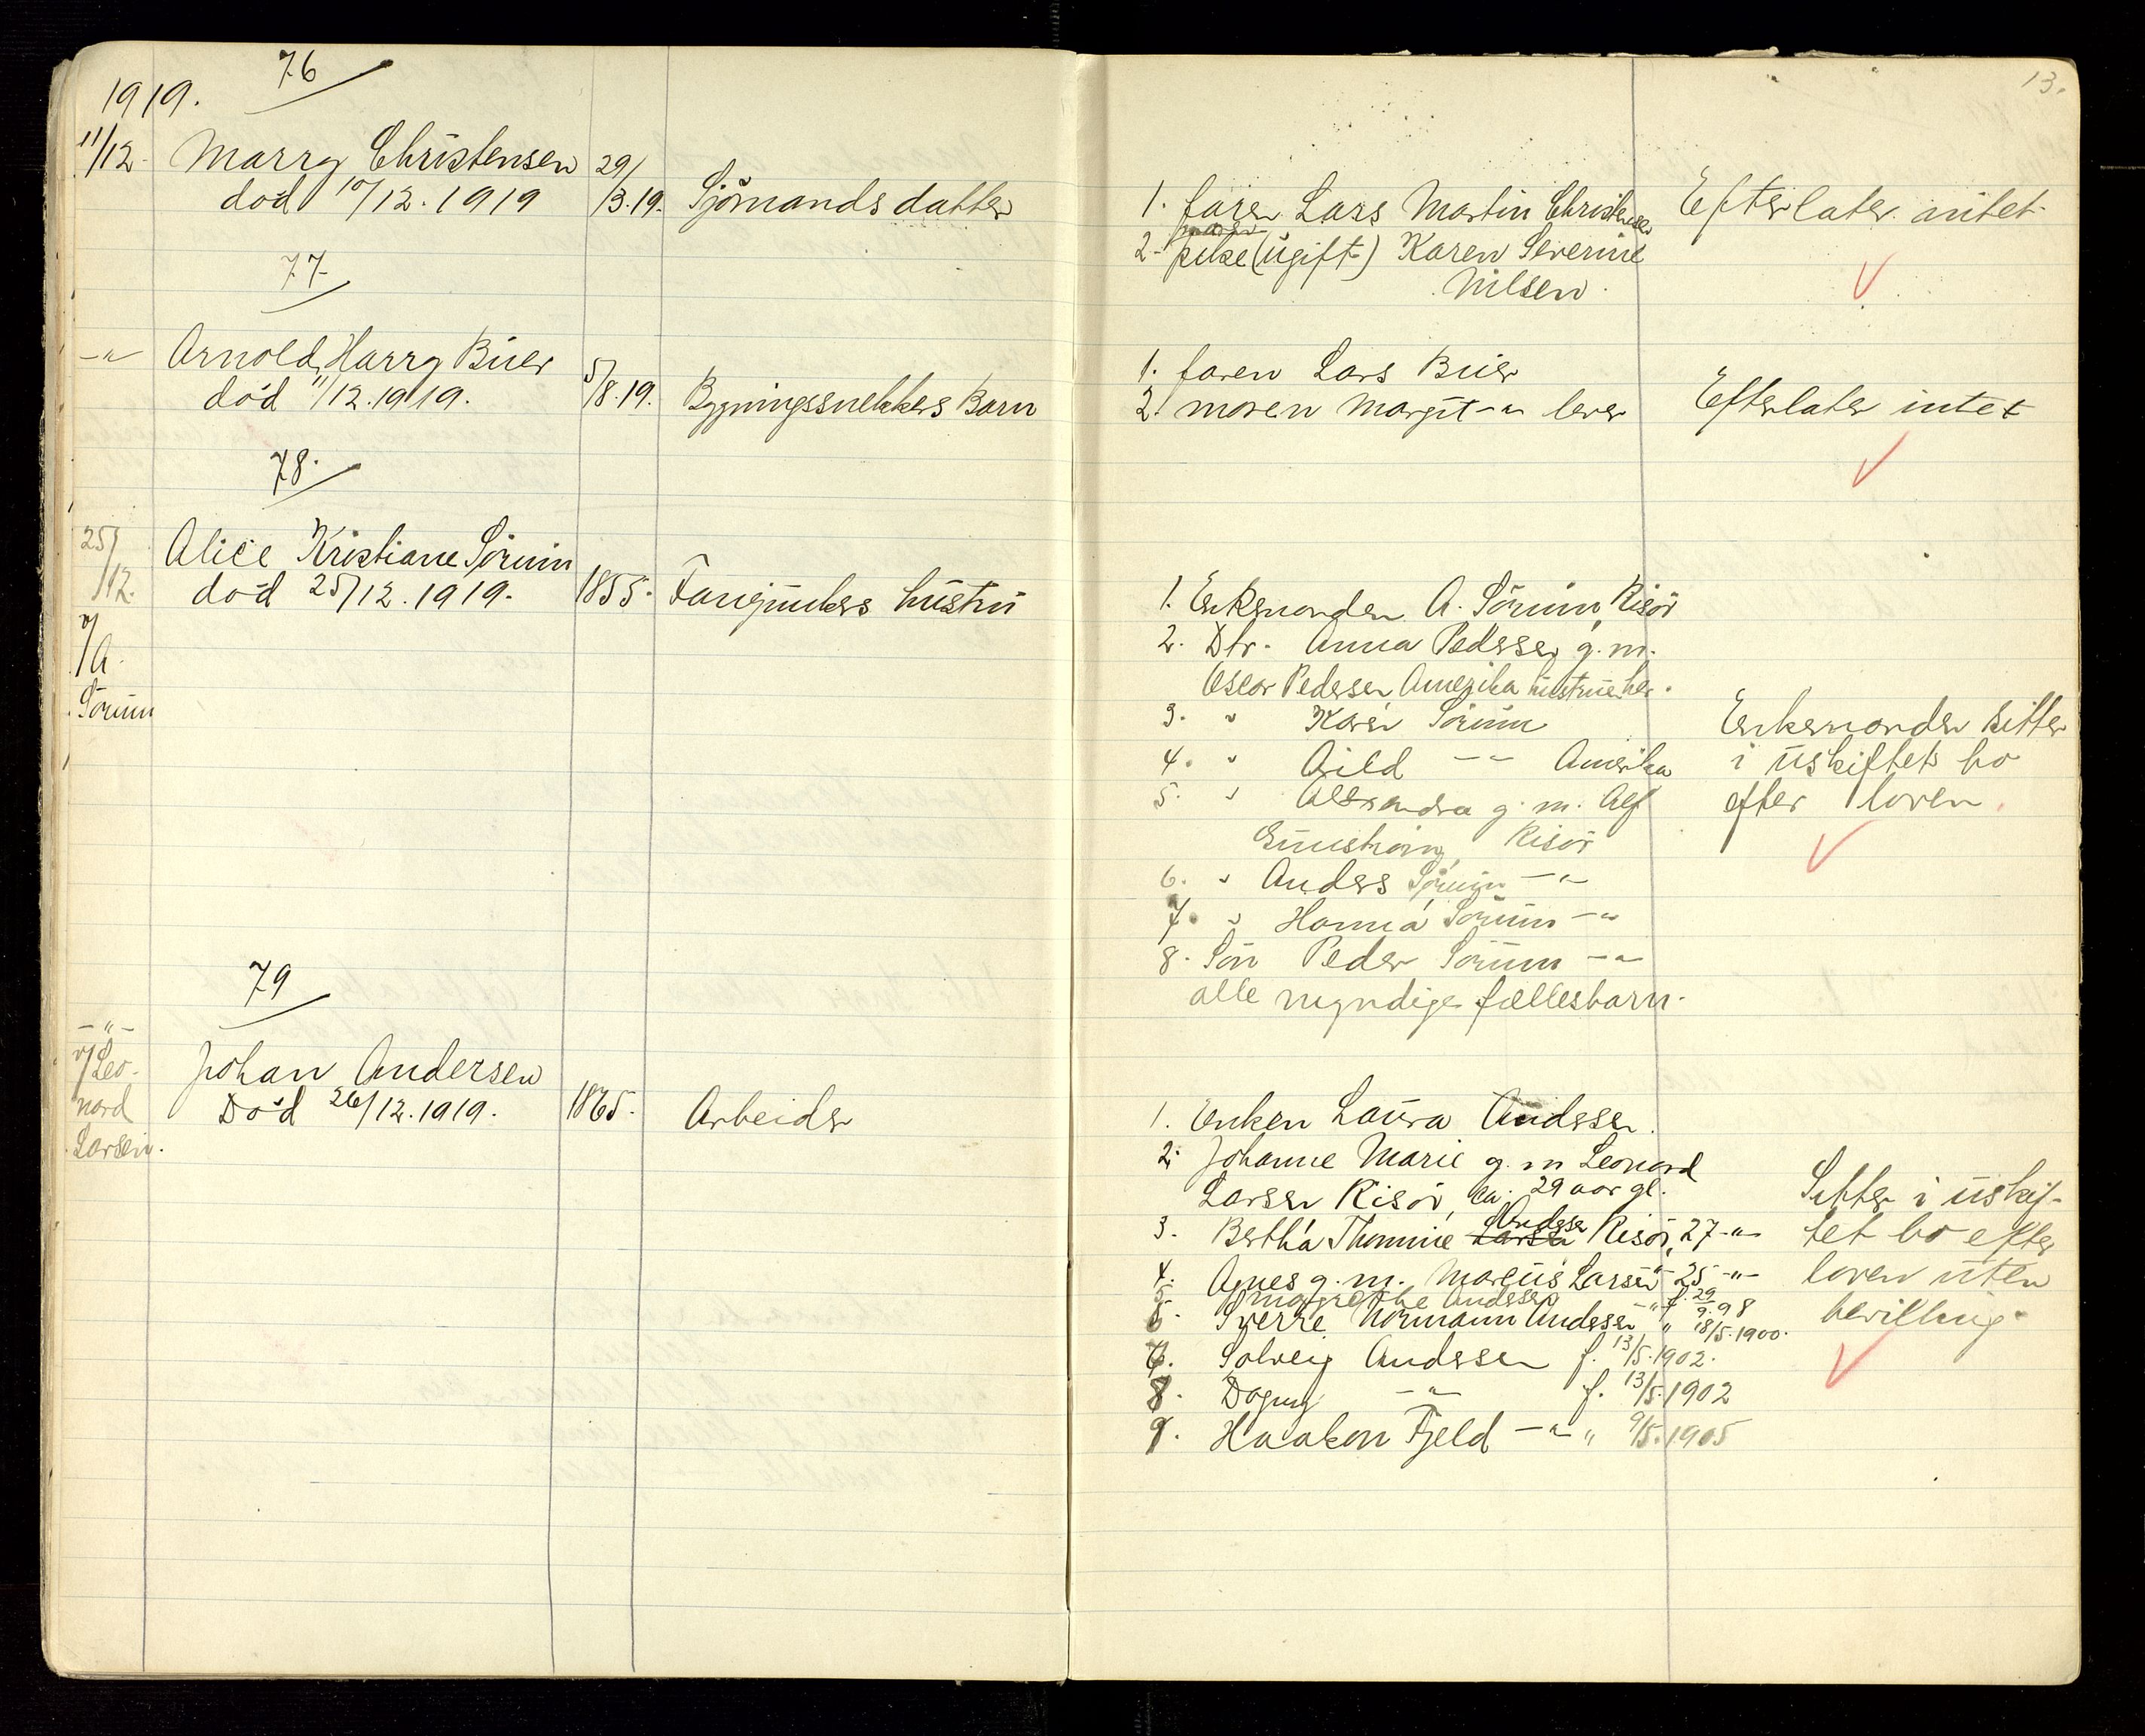 13.
76
1919.
11/12. Marry Christensen 29/
död 10/12. 1919 /3.19. Sjömands datter
1. faren Lars Martin Christensen Efterlater intet
moren
2. pike (ugift) Karen Severine
Nilsen.
77
-"- Arnold Harry Buer
död 11/12.1919. 5/8.19. Bygningssnekkers Barn
1. faren Lars Buer
2. moren Margit -"- lever Efterlater intet
78.
25/ Alice Kristiane Sörum
/12. död 25/12.1919. 1855. hustru
v/
/A.
Sörum
1. Enkemanden A. Sörum, Risör
2. Dtr. Anna Pedersen g.m.
Oscar Pedersen Amerika
3. " Karen Sörum Enkemanden sitter
4. " -"- Amerika i uskiftet bo
5. " Alexandra g.m. Alf efter loven.
Risör
6. " Anders Sörum -"-
7. " Hanna Sörum -"-
8. Sön Peder Sörum -"-
alle myndige fællesbarn.
79
-"-
v/Leo- Johan Andersen
nard Död 26/12.1919. 1865. Arbeider
Larsen.
1. Enken Laura Andersen.
2. Johanne Marie g.m Leonard
Larsen Risör, ca. 29 aar gl. Sitter i uskif-
Andersen
3. Bertha Thomine Larsen Risör, 27 -"- tet bo efter
4. Agnes g.m. Marcus Larsen -"- 25 -"- loven uten
5. Margrethe Andersen -"- f. 29/9.98
6. Sverre Normann Andersen " 18/5.1900. bevilling.
7. Solveig Andersen f. 13/5.1902.
8. Dagny -"- f. 13/5.1902
9. Haakon Fjeld -"- " 9/5.1905